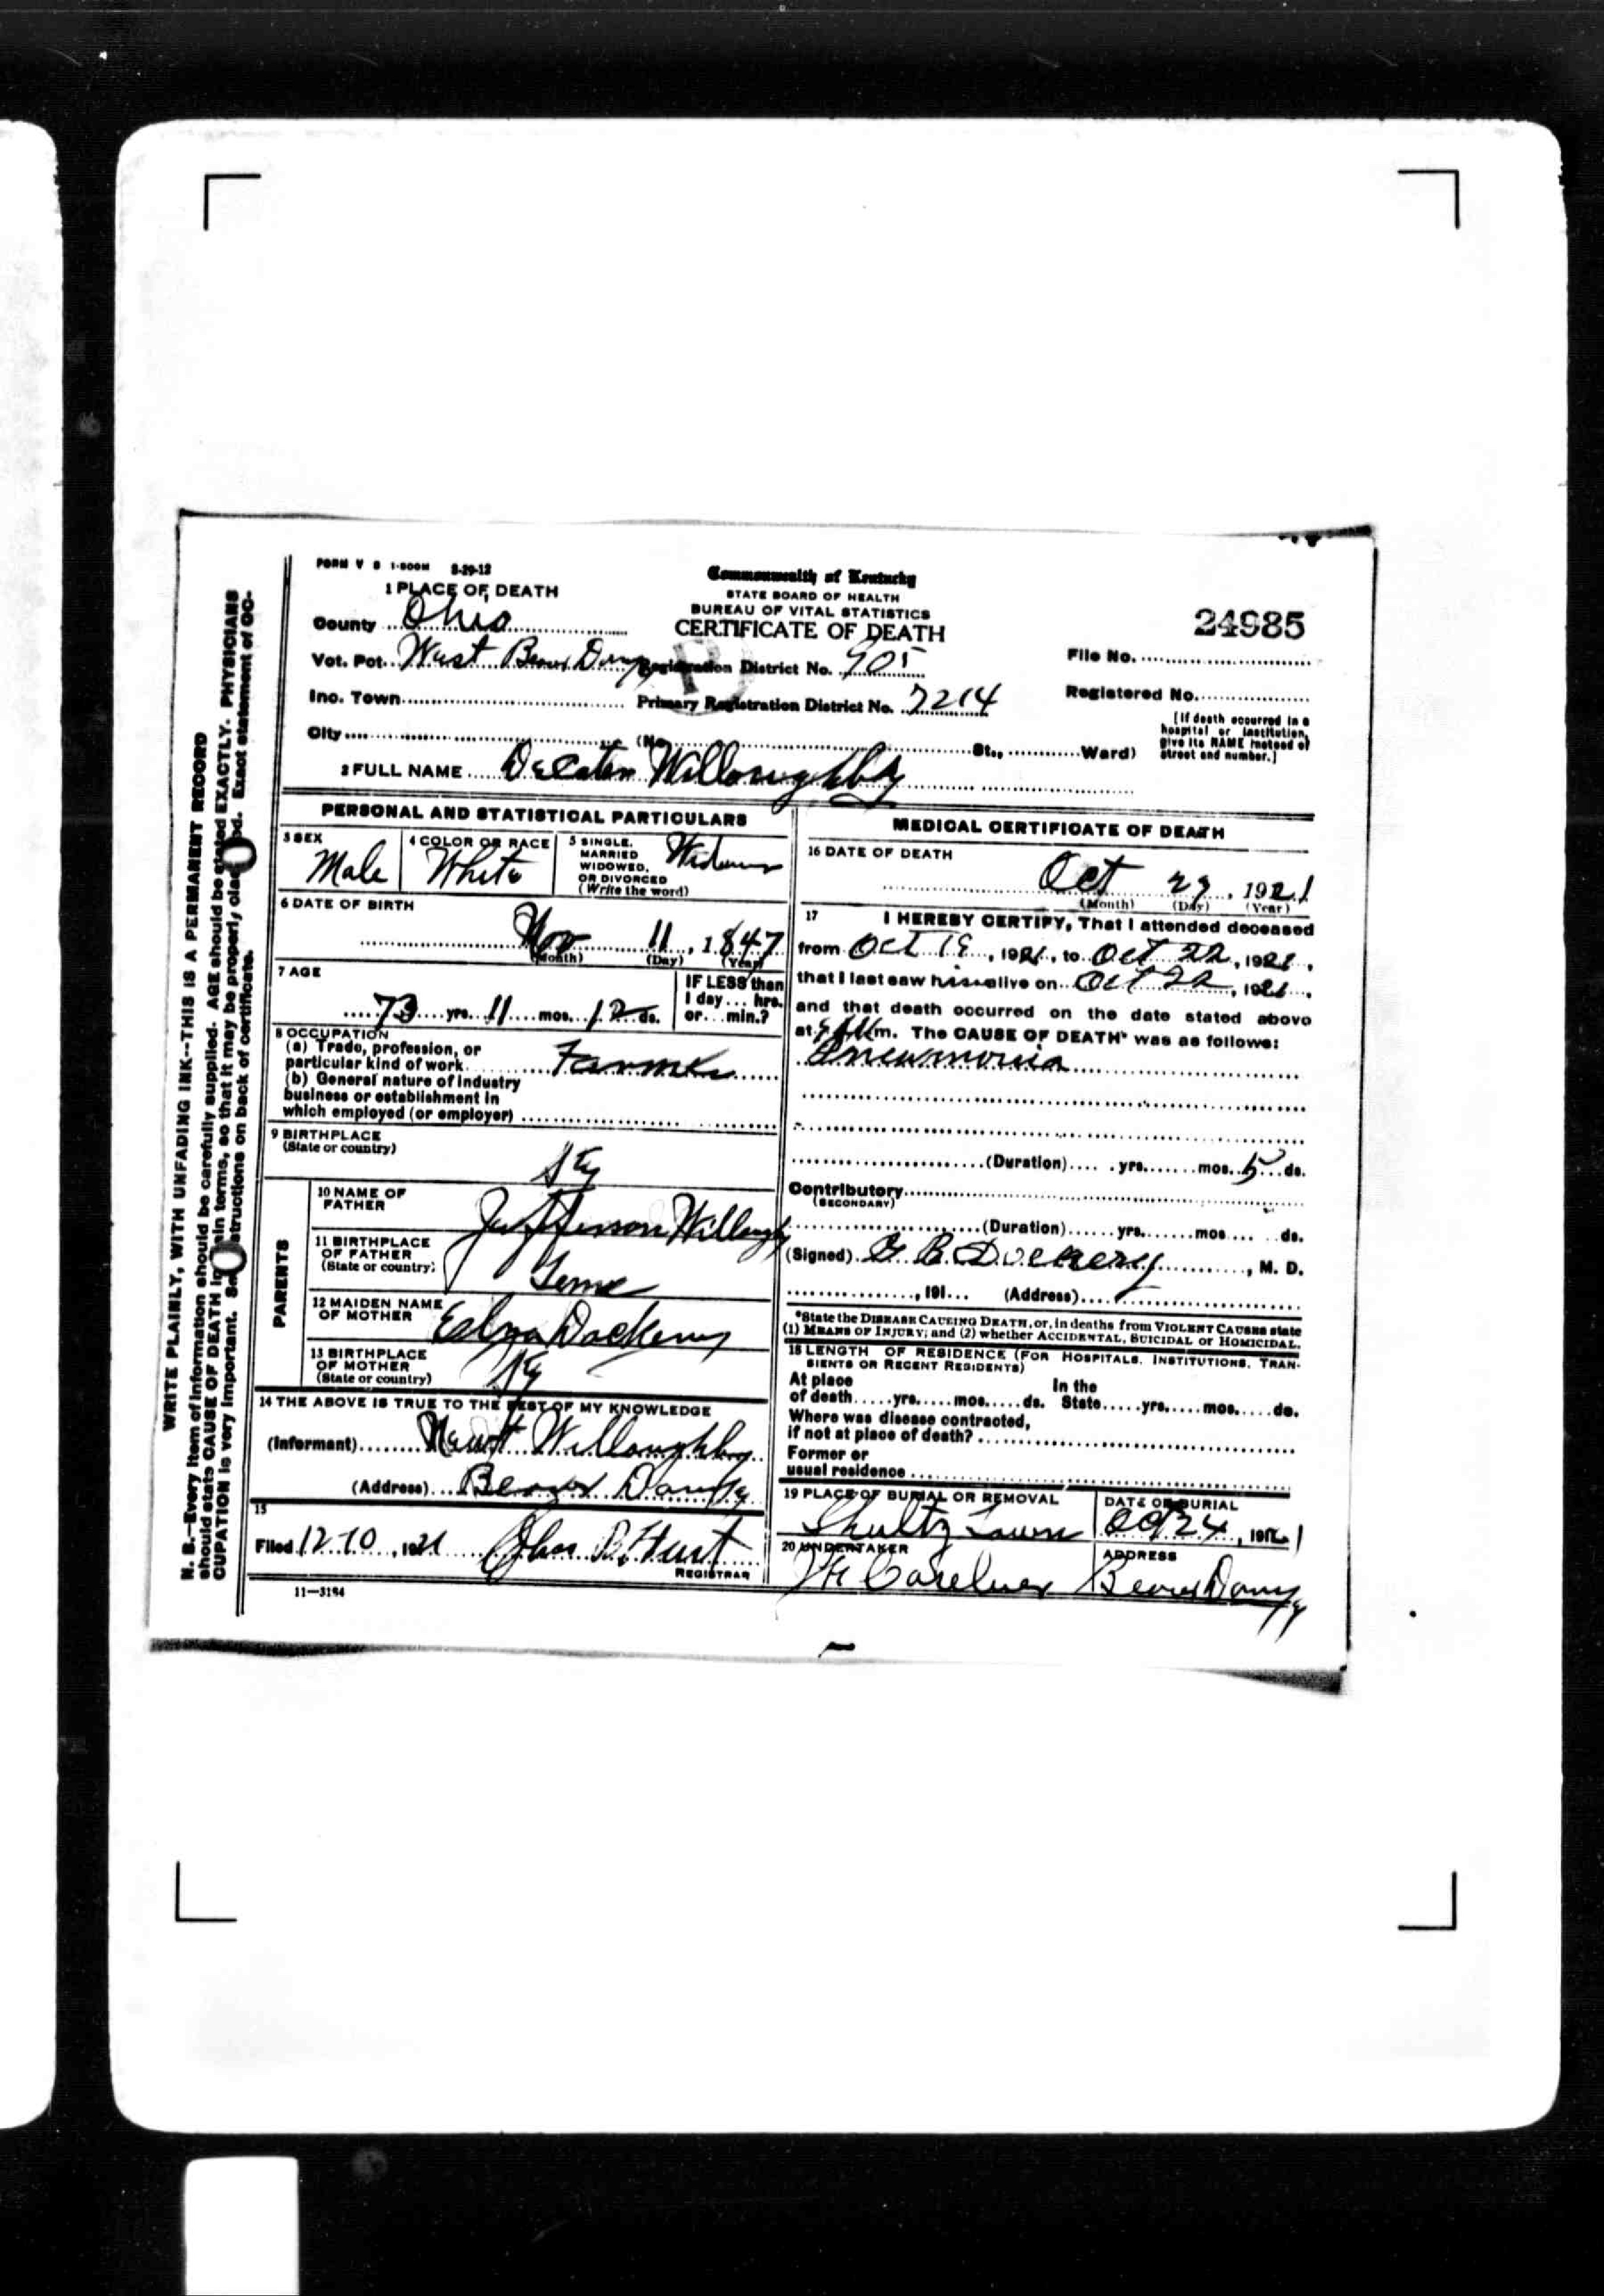 FORM V S 1-500M 8-29-12
1 PLACE OF DEATH
County Ohio
Vot. Pct. West Beaver Dam
Inc. Town
City
Commonwealth of Kentucky
STATE BOARD OF HEALTH
BUREAU OF VITAL STATISTICS
CERTIFICATE OF DEATH
Registration District No. 905
Primary Registration District No. 7214
(No. St., Ward)
24985
File No.
Registered No.
[If death occurred in a
hospital or institution,
give its NAME instead of
street and number.]
2 FULL NAME Willoughby
PERSONAL AND STATISTICAL PARTICULARS
3 SEX
Male
4 COLOR OR RACE
White
5 SINGLE,
MARRIED
WIDOWED,
OR DIVORCED
(Write the word)
6 DATE OF BIRTH
Nov 11, 1847
(Month) (Day) (Year)
7 AGE
73 yrs. 11 mos. 12 ds.
IF LESS than
1 day... hrs.
or... min.?
8 OCCUPATION
(a) Trade, profession, or
particular kind of work Farmer
(b) General nature of industry
business or establishment in
which employed (or employer)
9 BIRTHPLACE
(State or country)
Ky
PARENTS
10 NAME OF
FATHER
Jefferson Willoughby
11 BIRTHPLACE
OF FATHER
(State or country)
12 MAIDEN NAME
OF MOTHER
Dockery
13 BIRTHPLACE
OF MOTHER
(State or country)
Ky
14 THE ABOVE IS TRUE TO THE BEST OF MY KNOWLEDGE
(Informant) Willoughby
(Address) Beaver Dam Ky
15
Filed 12-10, 1921
REGISTRAR
11—3184
MEDICAL CERTIFICATE OF DEATH
16 DATE OF DEATH
Oct 23, 1921
(Month) (Day) (Year)
17 I HEREBY CERTIFY, That I attended deceased
from Oct 19, 1921, to Oct 22, 1921,
that I last saw him alive on Oct 22, 1921,
and that death occurred on the date stated above
at m. The CAUSE OF DEATH* was as follows:
Pneumonia
(Duration) yrs. mos. 5 ds.
Contributory
(SECONDARY)
(Duration) yrs. mos. ds.
(Signed) Dockery, M. D.
, 191 (Address)
*State the DISEASE CAUSING DEATH, or, in deaths from VIOLENT CAUSES state
(1) MEANS OF INJURY; and (2) whether ACCIDENTAL, SUICIDAL or HOMICIDAL.
18 LENGTH OF RESIDENCE (FOR HOSPITALS, INSTITUTIONS, TRAN-
SIENTS OR RECENT RESIDENTS)
At place In the
of death yrs. mos. ds. State yrs. mos. ds.
Where was disease contracted,
if not at place of death?
Former or
usual residence
19 PLACE OF BURIAL OR REMOVAL
Shultz Town
DATE OF BURIAL
Oct 24, 1921
20 UNDERTAKER
ADDRESS
Beaver Dam Ky
WRITE PLAINLY, WITH UNFADING INK--THIS IS A PERMANENT RECORD
N. B.—Every item of information should be carefully supplied. AGE should be stated EXACTLY. PHYSICIANS
should state CAUSE OF DEATH in plain terms, so that it may be properly classified. Exact statement of OC-
CUPATION is very important. See instructions on back of certificate.